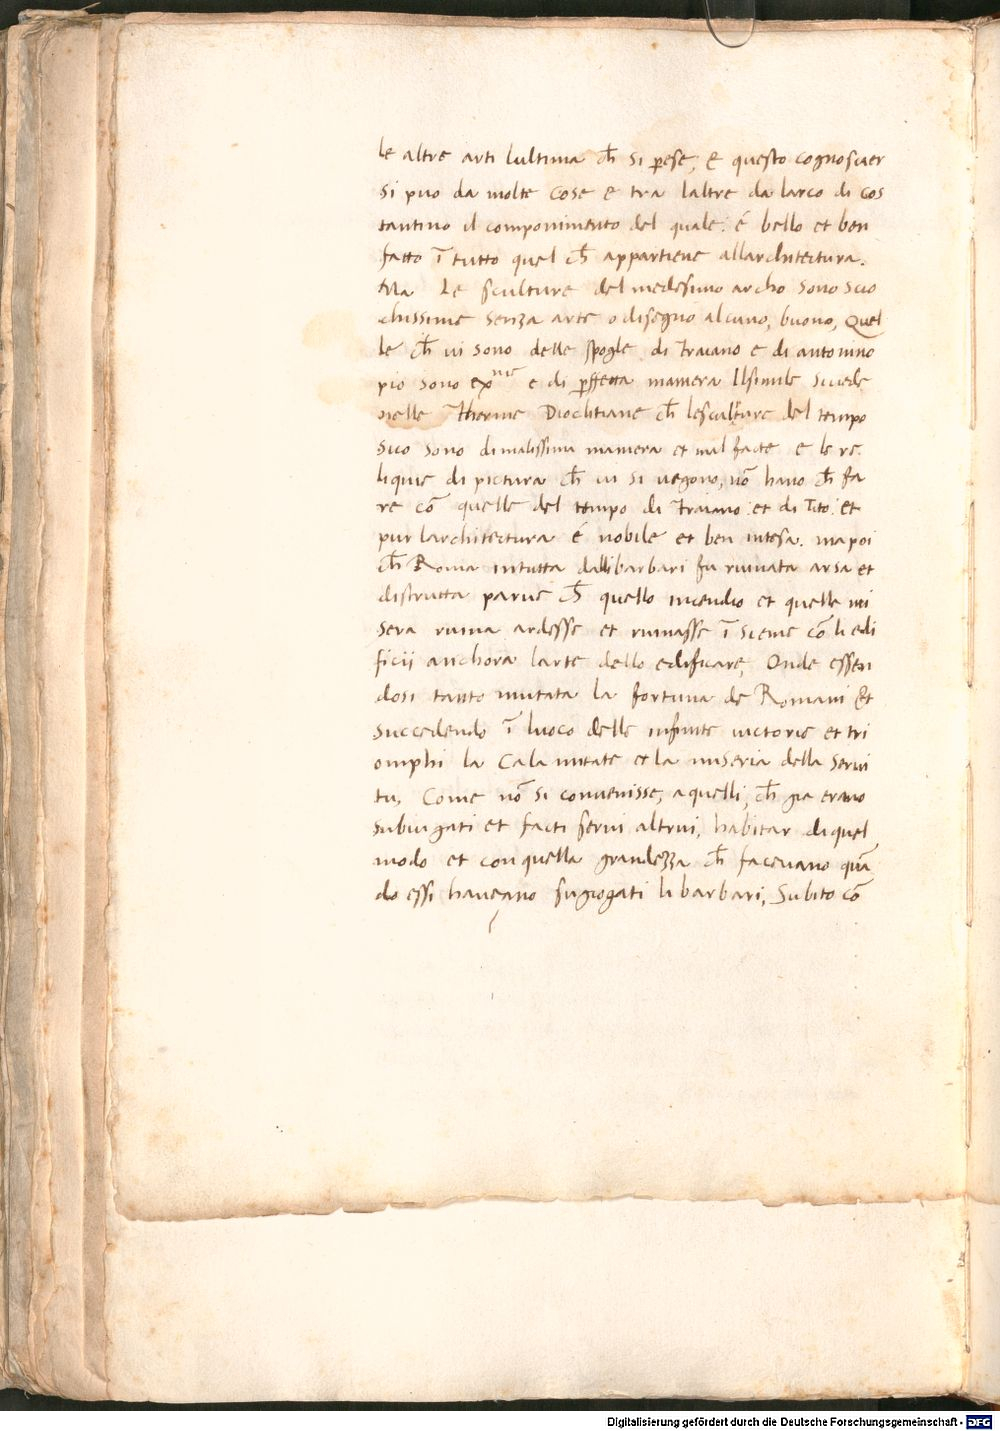 le altre arti lultima ch̄ si perse, E questo cognoscer
si puo da molte cose e tra laltre da larco di Cos
tantino il componimento del quale: é bello et ben
fatto ī tutto quel ch̄ appartiene allarchitectura.
Ma Le sculture del medesimo archo sono scio
chissime senza arte o disegno alcuno, buono, Quel
le ch̄ ui sono delle spogle di Traiano e di antonino
pio sono exme e di perffetta maniera Ilsimile Sucede
nelle Therme Dioclitiane ch̄ lesculture del tempo
suo sono dimalissima maniera et mal facte e le re.
liquie di pictura ch̄ ui si uegono, nō hano ch̄ fa
re cō quelle del tempo di Traiano: et di Tito: et
pur larchitectura é nobile et ben intesa. ma poi
ch̄ Roma intutta dallibarbari fu ruinata arsa et
distrutta parue ch̄ quello incendio et quella mi
sera ruina ardesse et ruinasse ī sieme cō li edi
ficii anchora larte dello edificare, Onde essen
dosi tanto mutata la fortuna de Romani Et
succedendo ī luoco delle infinite uictorie et tri
omphi la Cala mitate et la miseria della serui
tu, Come nō si conuenisse, a quelli, ch̄ gia erano
subiugati et facti serui altrui, habitar di quel
modo et con quella grandezza ch̄ faceuano quā
do essi haueano sugiogati li barbari, Subito cō
Digitalisierung gefördert durch die Deutsche Forschungsgemeinschaft - DFG